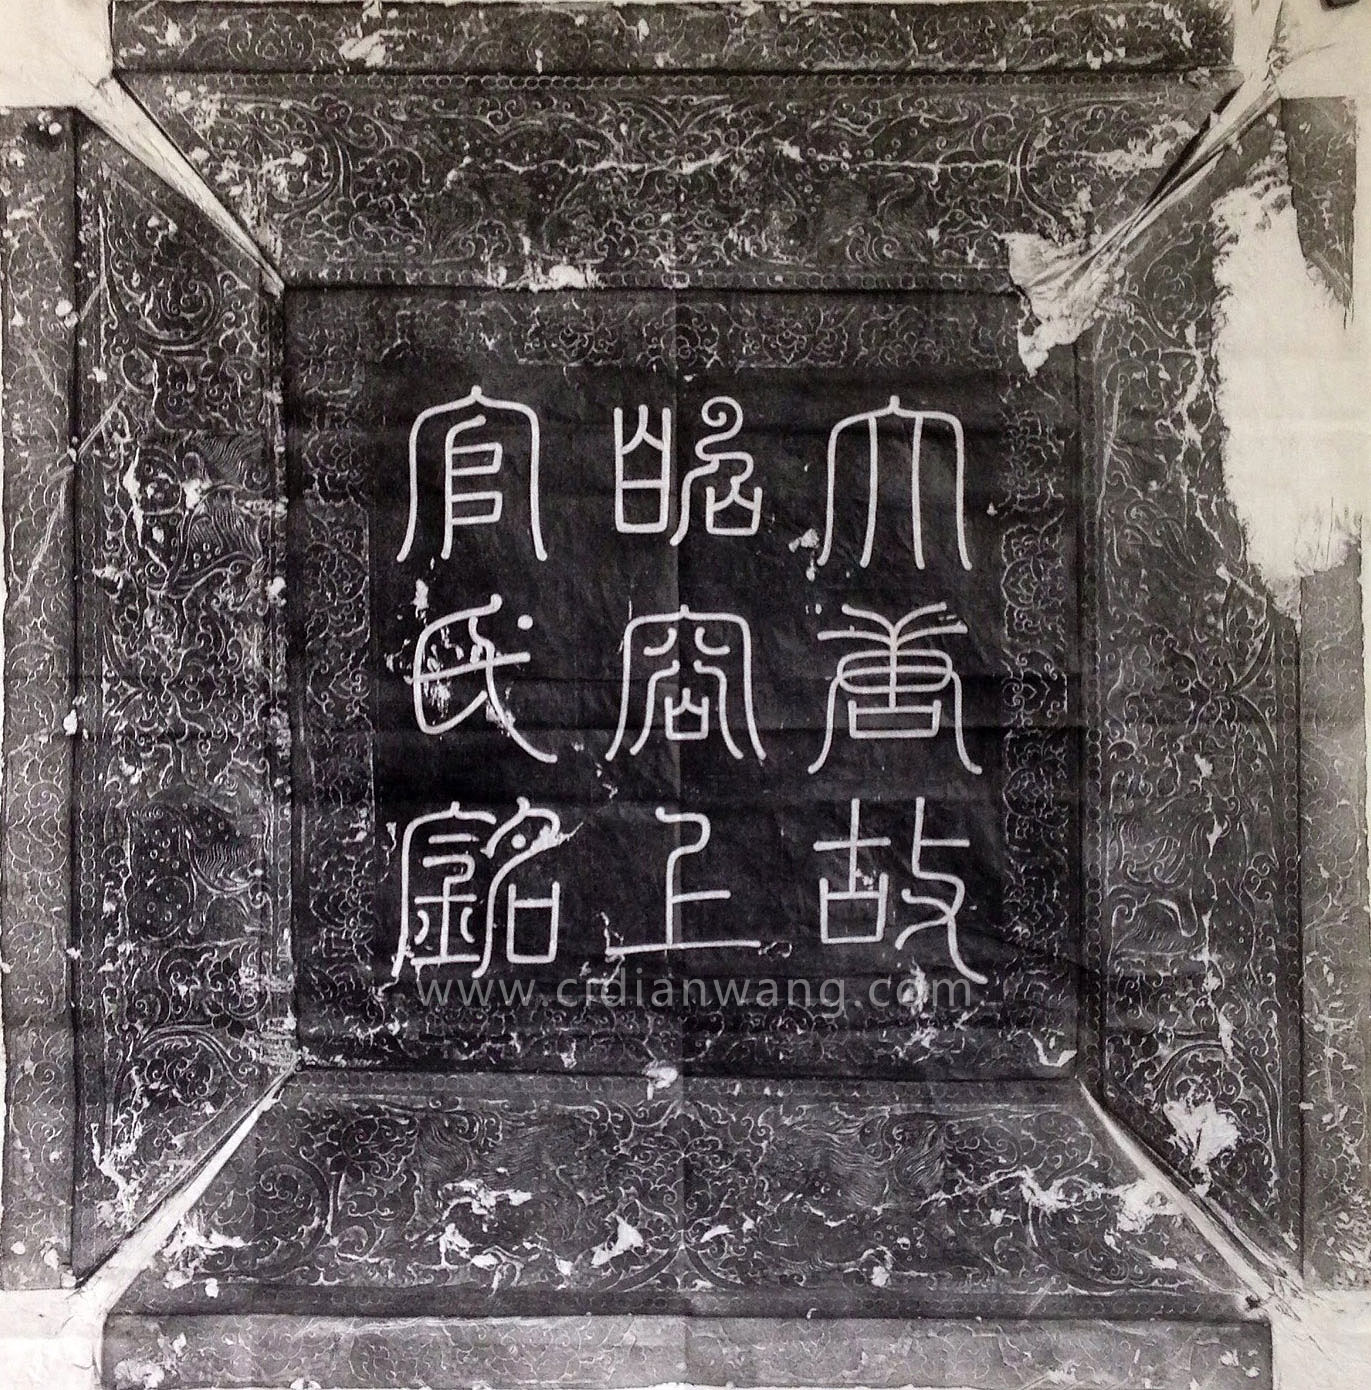 大唐故
昭容上
官氏銘
www.cidianwang.com